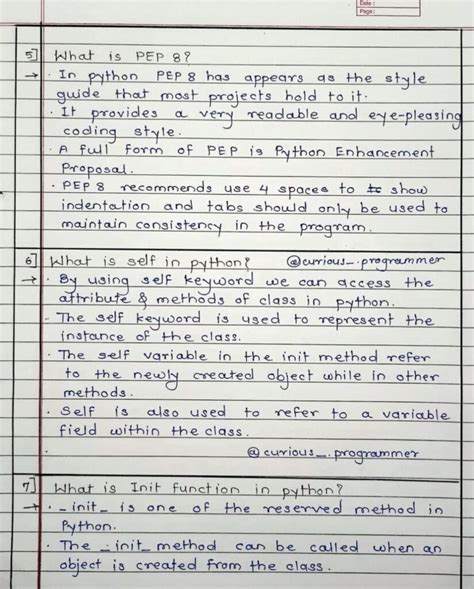 Date :
Page :
5] What is PEP 8?
→ · In python PEP 8 has appears as the style
guide that most projects hold to it.
· It provides a very readable and eye-pleasing
coding style.
· A full form of PEP is Python Enhancement
Proposal.
· PEP 8 recommends use 4 spaces to show
indentation and tabs should only be used to
maintain consistency in the program.
6] What is self in python? @curious_.programmer
→ · By using self keyword we can access the
attribute & methods of class in python.
· The self keyword is used to represent the
instance of the class.
· The self variable in the init method refer
to the newly created object while in other
methods.
· Self is also used to refer to a variable
field within the class.
@curious_.programmer
7] What is Init function in python?
→ · _init_ is one of the reserved method in
Python.
· The _init_ method can be called when an
object is created from the class.